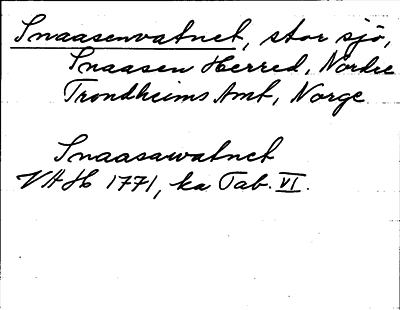 Snaasenvatnet, stor sjö,
Snaasen Herred, Nordre
Trondheims Amt, Norge
Snaasawatnet
VAH 1771, ka Tab. VI.